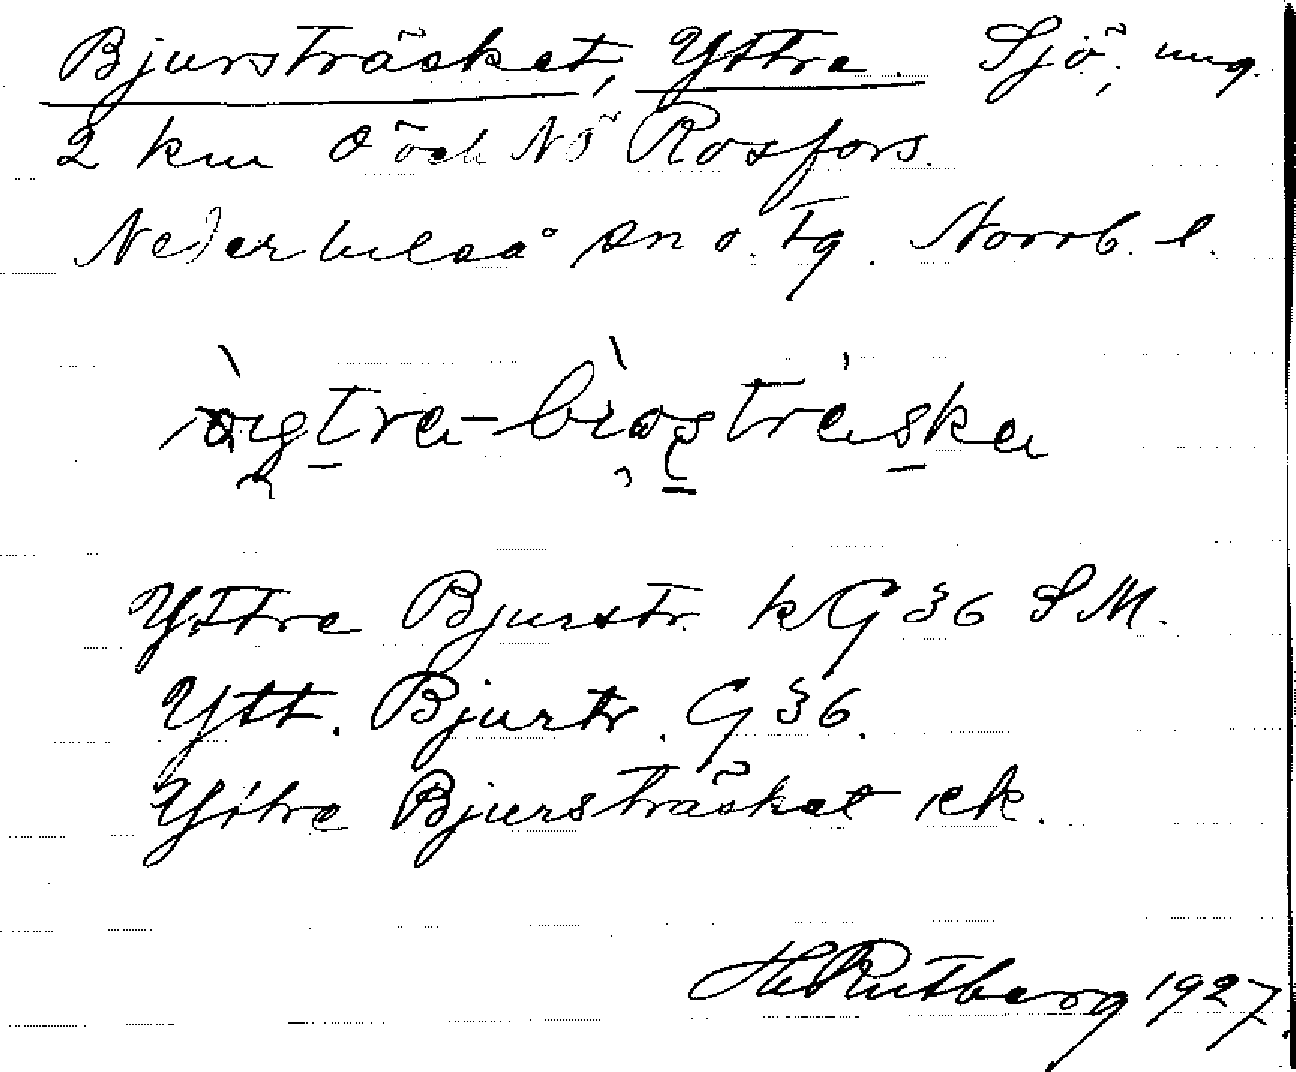 Bjursträsket, Yttre. Sjö, ung.
2 km Ö och NÖ Rosfors.
Nederluleå sn o. tg. Norrb. l.
Yttre Bjurstr. kG 36 SM.
Ytt. Bjurtr. G 36.
Yttre Bjursträsket ek.
H. Rutberg 1927.